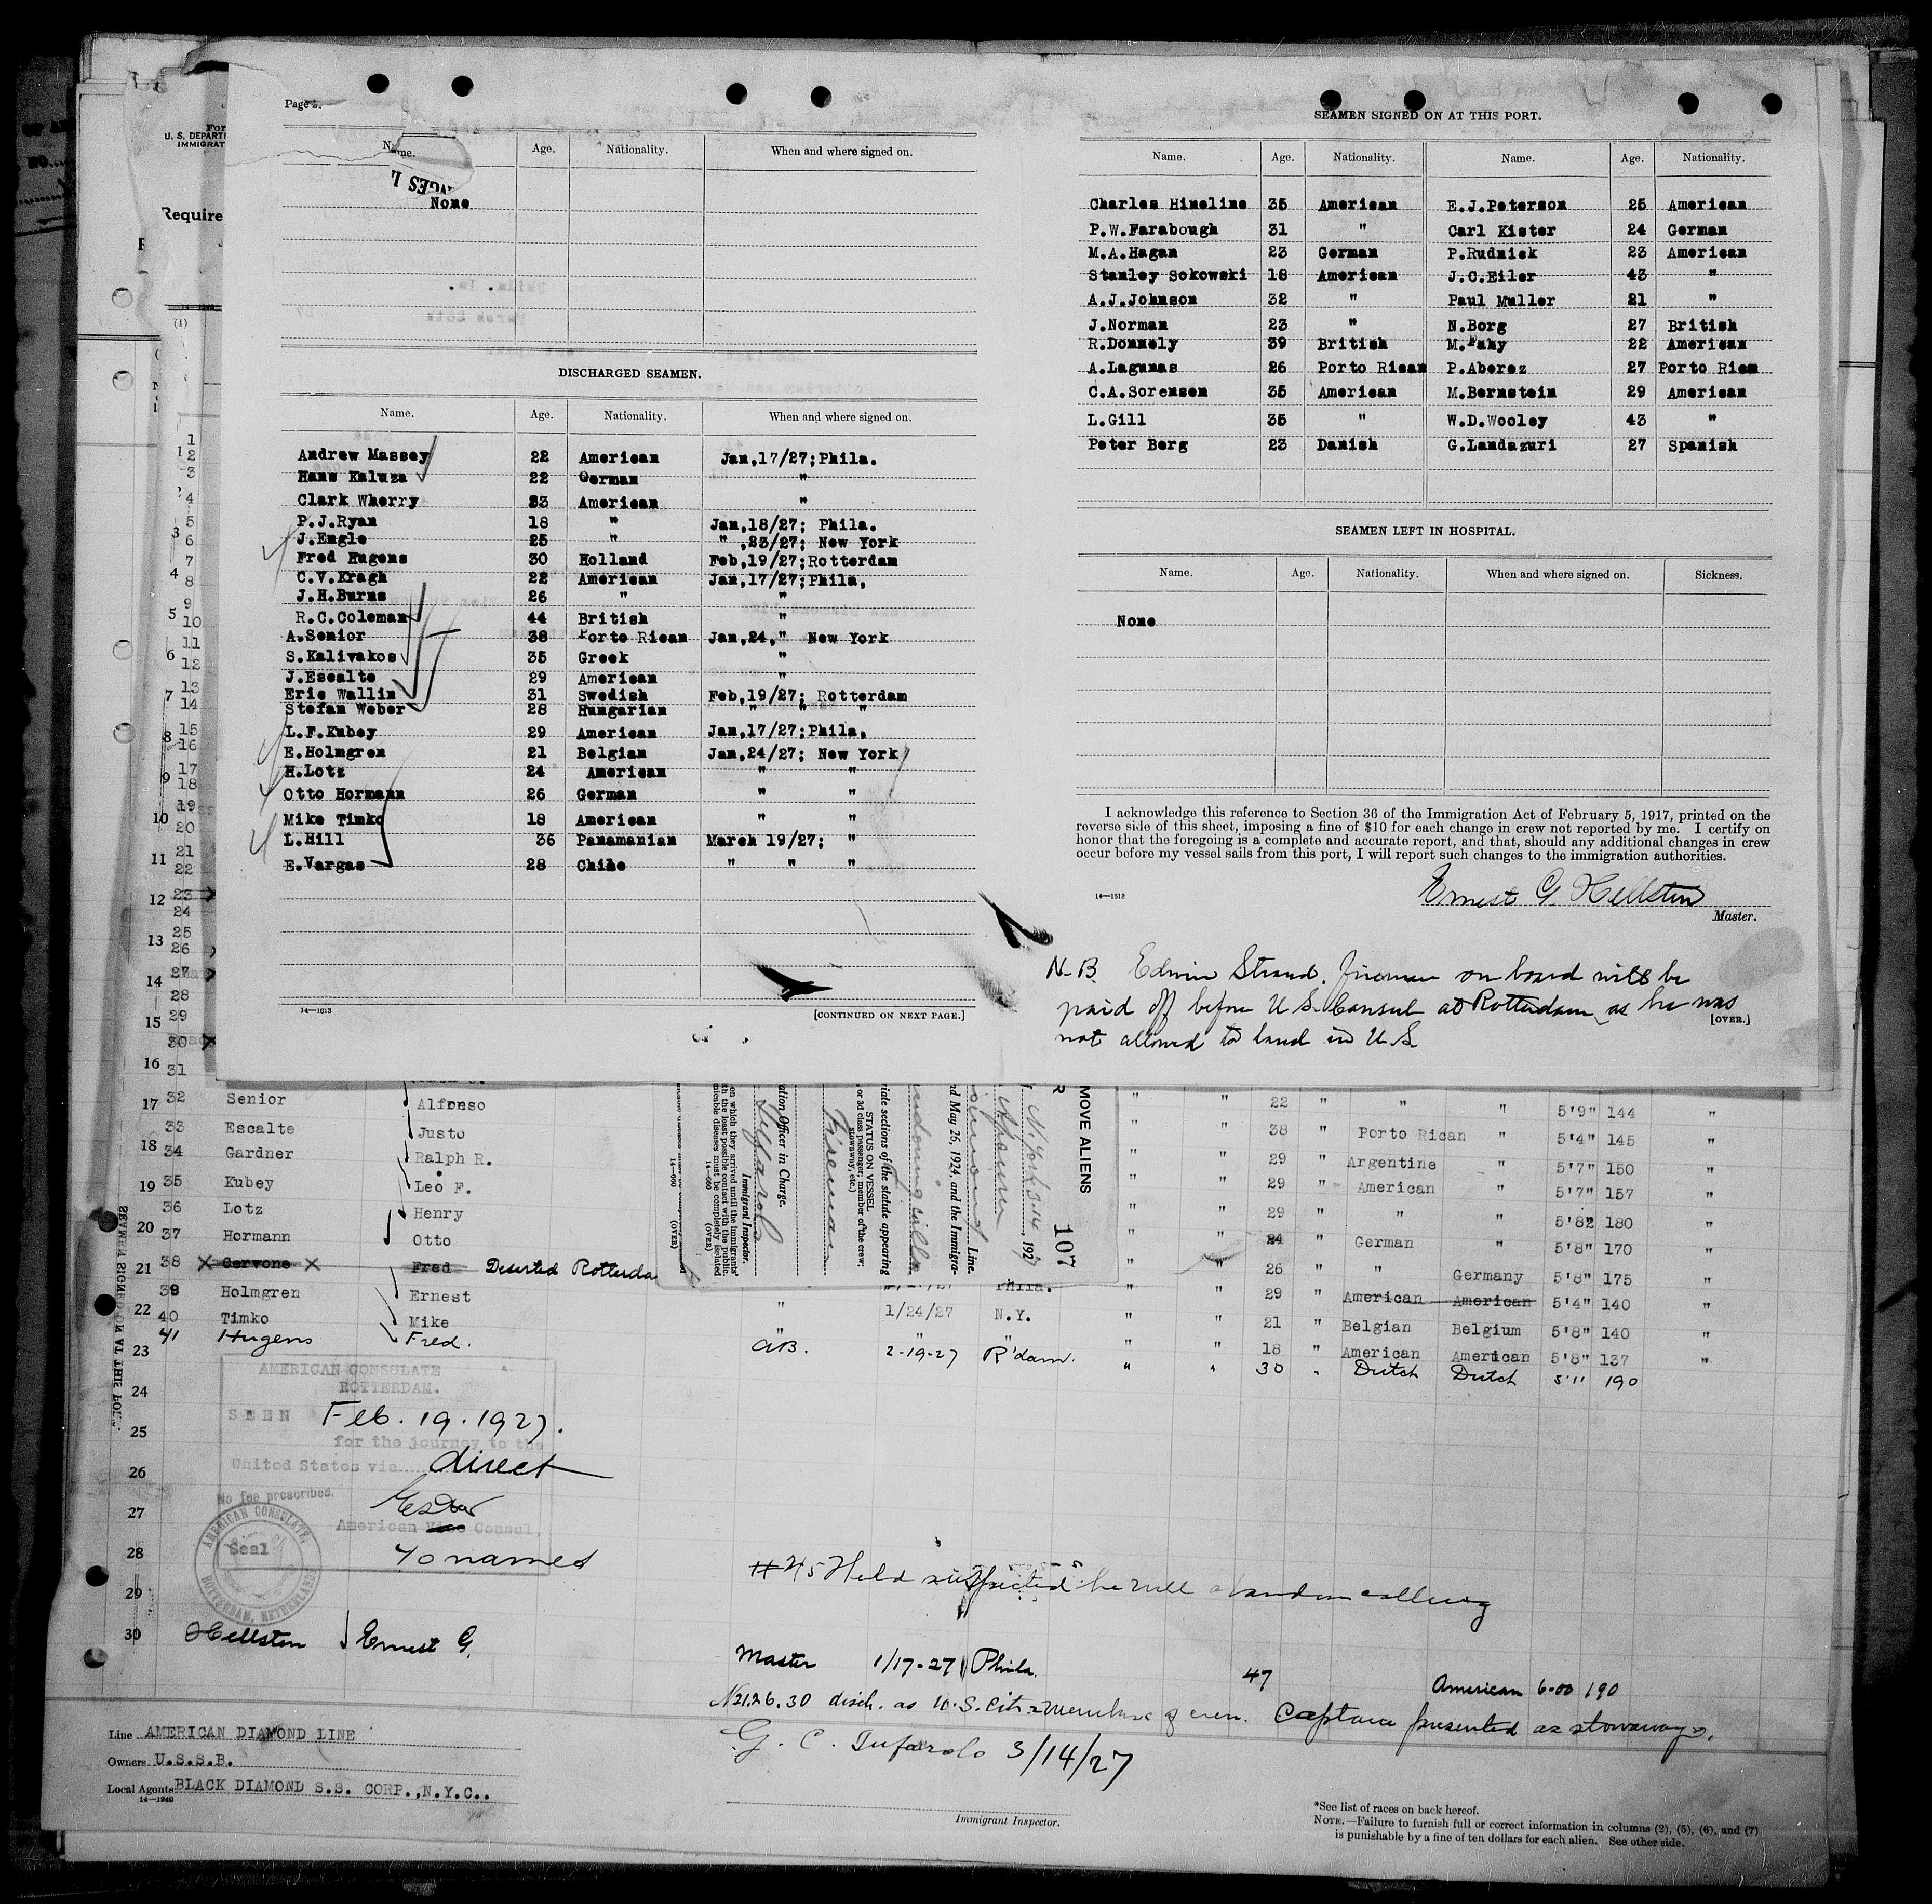 Page 2.
Name. Age. Nationality. When and where signed on.
None
DISCHARGED SEAMEN.
Name. Age. Nationality. When and where signed on.
Andrew Massey 22 American Jan,17/27;Phila.
Hans Kaluza 22 German "
Clark Wherry 23 American "
P.J.Ryan 18 " Jan,18/27; Phila.
J.Engle 25 " " ,23/27; New York
Fred Hugens 30 Holland Feb,19/27;Rotterdam
C.V.Kragh 22 American Jan,17/27;Phila,
J.H.Burns 26 " "
R.C.Coleman 44 British "
A.Senior 38 Porto Rican Jan,24," New York
S.Kalivakos 35 Greek "
J.Escalte 29 American "
Eric Wallin 31 Swedish Feb,19/27; Rotterdam
Stefan Weber 28 Hungarian " " "
L.F.Kubey 29 American Jan,17/27;Phila,
E.Holmgren 21 Belgian Jan,24/27; New York
H.Lotz 24 American " "
Otto Hormann 26 German " "
Mike Timko 18 American " "
L.Hill 36 Panamanian March 19/27; "
E.Vargas 28 Chile " " "
14—1613
[CONTINUED ON NEXT PAGE.]
SEAMEN SIGNED ON AT THIS PORT.
Name. Age. Nationality. Name. Age. Nationality.
Charles Himeline 35 American E.J.Peterson 25 American
P.W.Farabough 31 " Carl Kister 24 German
M.A.Hagan 23 German P.Rudnick 23 American
Stanley Sokowski 18 American J.C.Eiler 43 "
A.J.Johnson 32 " Paul Muller 21 "
J.Norman 23 " N.Borg 27 British
R.Donnely 39 British M.Fahy 22 American
A.Lagunas 26 Porto Rican P.Aberez 27 Porto Rican
C.A.Sorensen 35 American M.Bernstein 29 American
L.Gill 35 " W.D.Wooley 43 "
Peter Berg 23 Danish G.Landazuri 27 Spanish
SEAMEN LEFT IN HOSPITAL.
Name. Age. Nationality. When and where signed on. Sickness.
None
I acknowledge this reference to Section 36 of the Immigration Act of February 5, 1917, printed on the
reverse side of this sheet, imposing a fine of $10 for each change in crew not reported by me. I certify on
honor that the foregoing is a complete and accurate report, and that, should any additional changes in crew
occur before my vessel sails from this port, I will report such changes to the immigration authorities.
Ernest G. Hellsten
14—1613
Master.
N.B. Edwin Strand, fireman on board will be
paid off before U.S. Consul at Rotterdam, as he was
not allowed to land in U.S.
[OVER.]
U. S. DEPART
IMMIGRAT
Require
MOVE ALIENS
107
N. York 3-14, 1927
Line.
nd May 26, 1924, and the Immigra-
riate sections of the statute appearing
STATUS ON VESSEL
or 3d class passenger; member of the crew;
stowaway, etc.)
Fireman
ation Officer in Charge.
Immigrant Inspector.
on which they arrived until the immigrants'
th the least possible contact with the public.
nicable diseases must be completely isolated
14—660 (OVER)
14—660 (OVER)
22 " " " 5'9" 144 "
32 Senior Alfonso " " 38 " Porto Rican " 5'4" 145 "
33 Escalte Justo " " 29 " Argentine " 5'7" 150 "
34 Gardner Ralph R. " " 29 " American " 5'7" 157 "
35 Kubey Leo F. " " 29 " " " 5'8½ 180 "
36 Lotz Henry " " 24 " German " 5'8" 170 "
37 Hormann Otto " " 26 " " Germany 5'8" 175 "
38 Gervone Fred Deserted Rotterda Phila. " " 29 " American American 5'4" 140 "
39 Holmgren Ernest " 1/24/27 N.Y. " " 21 " Belgian Belgium 5'8" 140 "
40 Timko Mike " " " " " 18 " American American 5'8" 137 "
41 Hugens Fred. AB. 2-19-27 R'dam. " " 30 " Dutch Dutch 5'11 190
AMERICAN CONSULATE
ROTTERDAM.
SEEN Feb. 19. 1927.
for the journey to the
United States via direct
No fee prescribed.
American Vice Consul.
Seal
AMERICAN CONSULATE, ROTTERDAM, NETHERLAND
40 named
#45 Held suspected he will abandon calling
30 Hellsten Ernest G. Master 1/17-27 Phila. 47 American 6-00 190
N21.26.30 disch. as U.S. Cit. members of crew. Captain presented as stowaways.
G. C. Tufarolo 3/14/27
Immigrant Inspector.
Line AMERICAN DIAMOND LINE
Owners U.S.S.B.
Local Agents BLACK DIAMOND S.S. CORP.,N.Y.C..
14—1240
*See list of races on back hereof.
NOTE.—Failure to furnish full or correct information in columns (2), (5), (6), and (7)
is punishable by a fine of ten dollars for each alien. See other side.